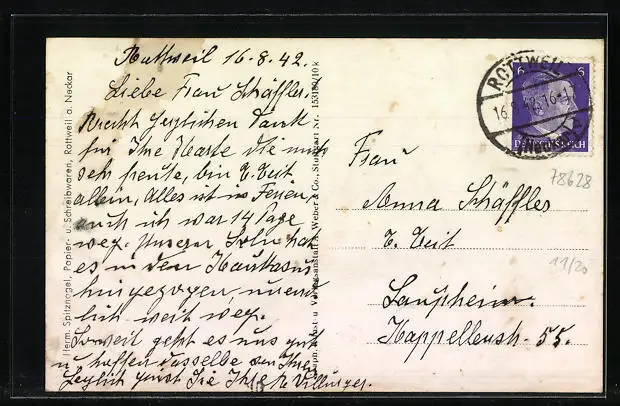 Rottweil 16.8.42.
Liebe Frau Schäffler!
Recht herzlichen Dank
für Ihre Karte die mich
sehr freute, bin z. Zeit
allein, Alles ist in Ferien,
auch ich war 14 Tage
weg. Unsern Sohn hat
es in den Kaukasus
hingezogen, unend
lich weit weg.
Soweit geht es uns gut
u. hoffen dasselbe von Ihnen
Herzlich grüsst Sie Ihre Fr. Villinger.
Herm. Spitznagel, Papier- u. Schreibwaren, Rottweil a. Neckar
Graph. Kunst- u. Verlagsanstalt A. Weber & Co., Stuttgart Nr. 153180/10 k
ROTTWEIL
16.8.42.16-17
(NECKAR)
6 6
DEUTSCHES REICH
78628
Frau
Anna Schäffler
z. Zeit
11/20
Laupheim.
Kappellenstr. 55.